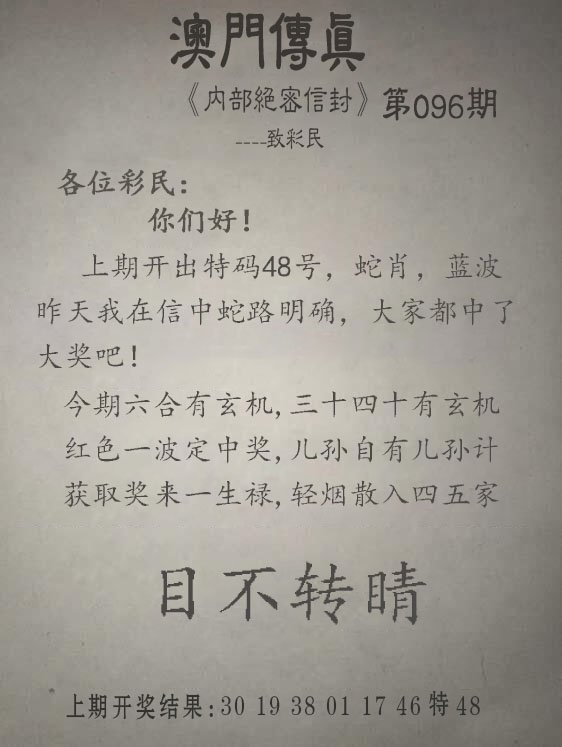 澳門傳眞
《内部絕密信封》第096期
----致彩民
各位彩民：
你们好！
上期开出特码48号，蛇肖，蓝波
昨天我在信中蛇路明确，大家都中了
大奖吧！
今期六合有玄机,三十四十有玄机
红色一波定中奖,儿孙自有儿孙计
获取奖来一生禄,轻烟散入四五家
目不转睛
上期开奖结果:30 19 38 01 17 46特48